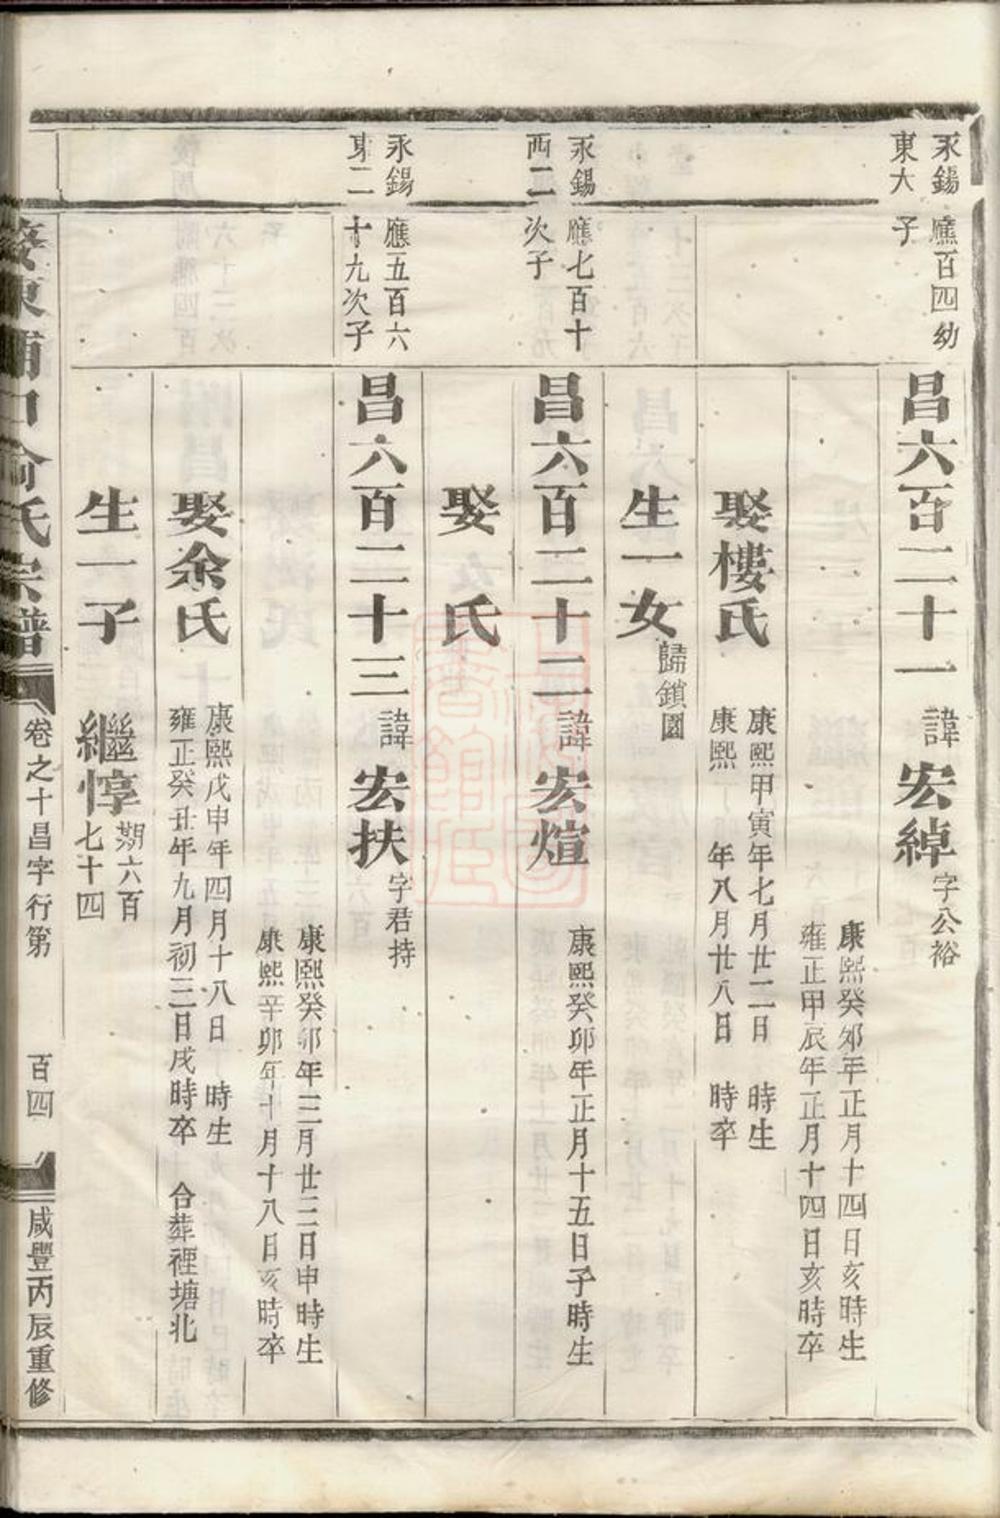 永錫
東大
應百四幼
子
昌六百二十一
諱宏綽
字公裕
康熙癸卯年正月十四日亥時生
雍正甲辰年正月十四日亥時卒
娶樓氏
康熙甲寅年七月廿二日 時生
康熙丁 年八月廿八日 時卒
生一女
歸鎖園
永錫
西二
應七百十
次子
昌六百二十二
諱宏煊
康熙癸卯年正月十五日子時生
娶 氏
永錫
東二
應五百六
十九次子
昌六百二十三
諱宏扶
字君持
康熙癸卯年三月廿三日申時生
康熙辛卯年十月十八日亥時卒
娶余氏
康熙戊申年四月十八日 時生
雍正癸丑年九月初三日戌時卒 合葬裡塘北
生一子
繼惇
期六百
七十四
東浦口俞氏宗譜
卷之十昌字行第
百四
咸豐丙辰重修